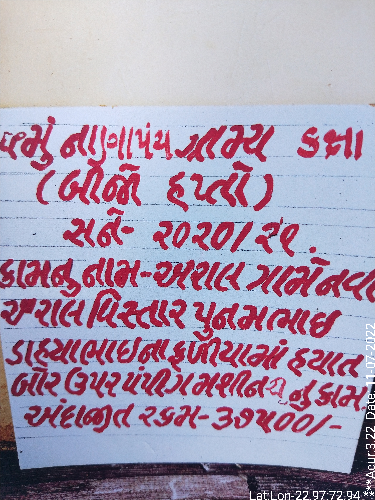 ૧૫મું નાણાપંચ ગ્રામ્ય કક્ષા
(બીજો હપ્તો)
સને- ૨૦૨૦/૨૧.
કામનુ નામ-અરાલ ગામે નવા
અરાલ વિસ્તાર પુનમભાઇ
ડાહ્યાભાઇના ફળીયામાં હયાત
બોર ઉપર પંપીગ મશીન નુ કામ
અંદાજીત રકમ- ૩૭૫૦૦/-
Lat:Lon-22.97:72.94 ***Acur:3.22 Date:11-07-2022